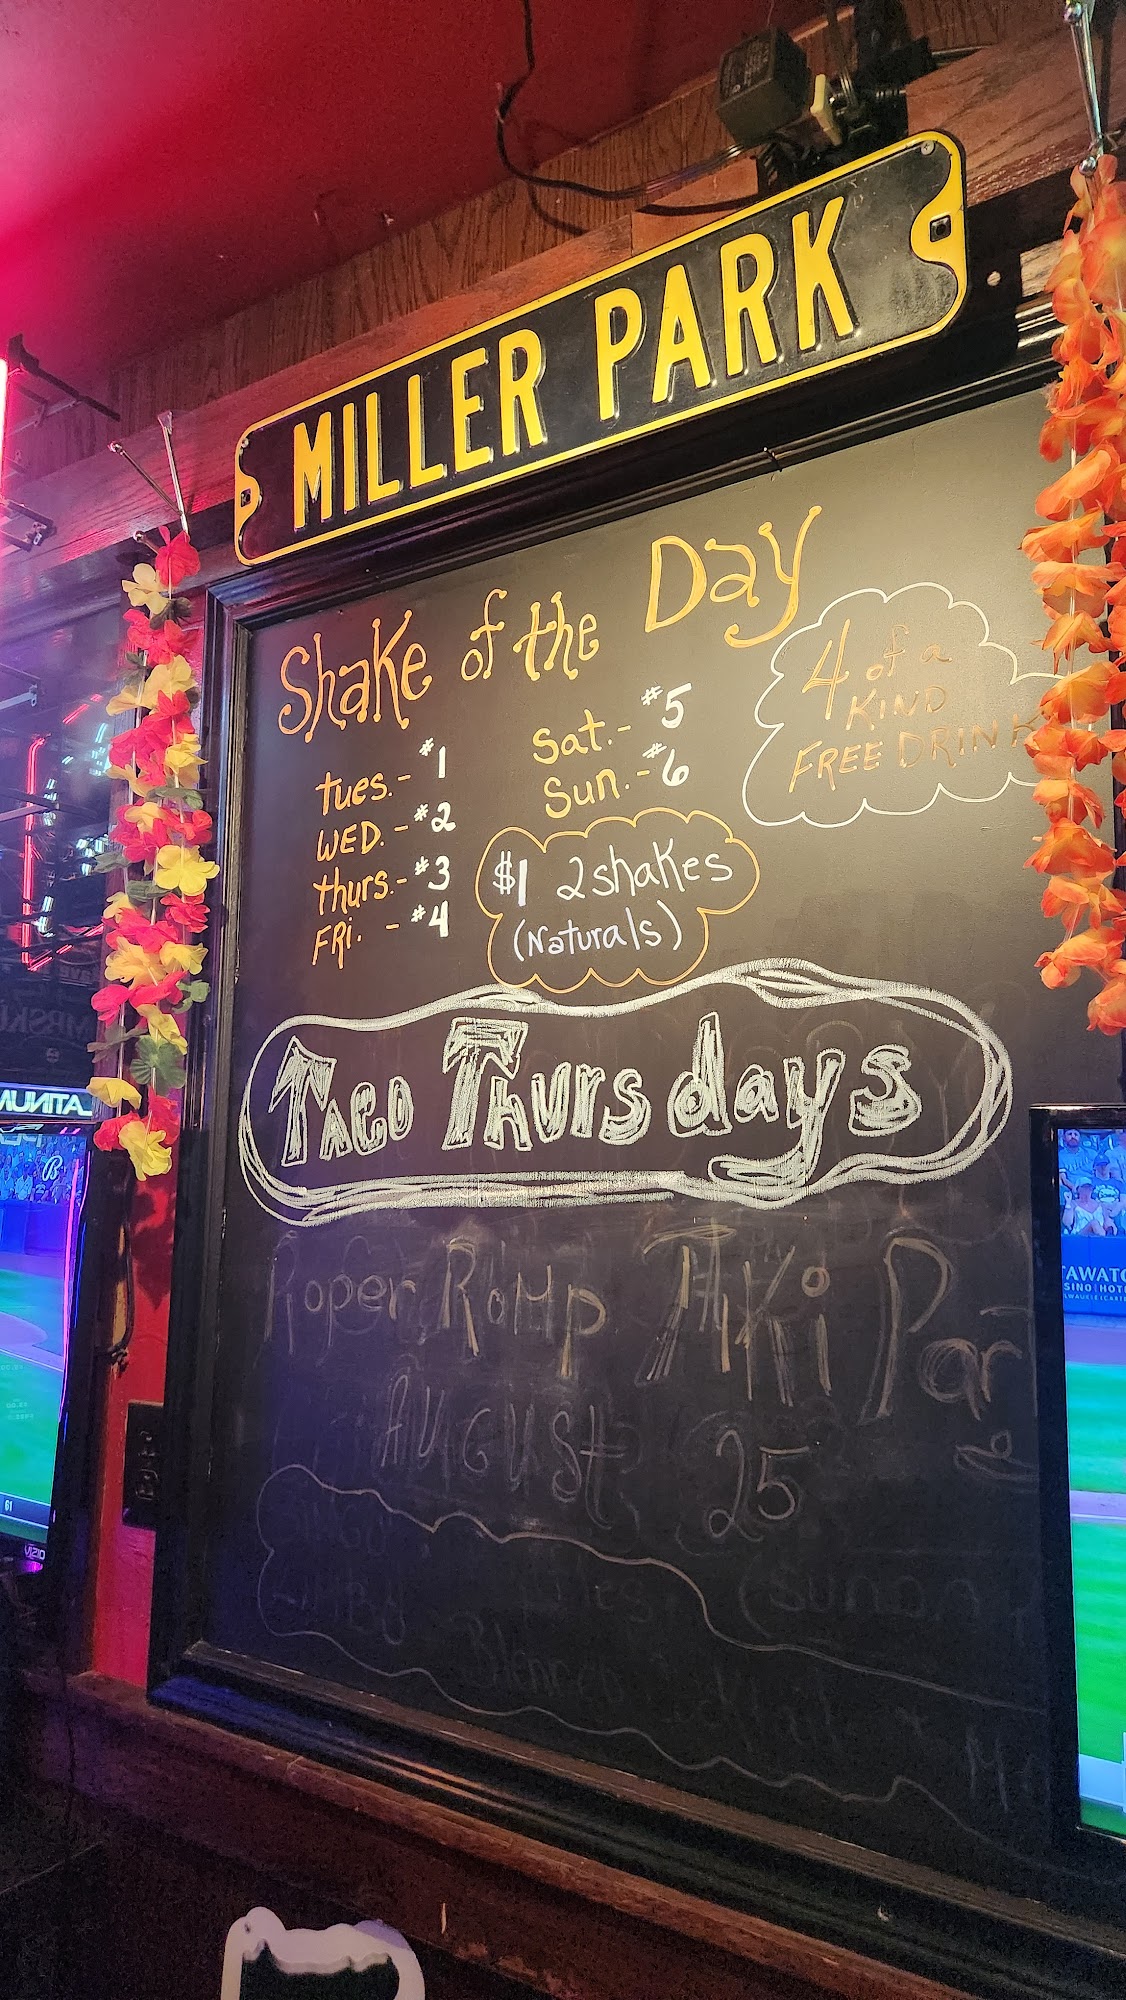 MILLER PARK
Shake of the Day
tues. - #1
WED. - #2
thurs. - #3
FRi. - #4
Sat. - #5
Sun. - #6
4 of a
KIND
FREE DRINK
$1 2 shakes
(Naturals)
Taco Thursdays
Roper Romp Tiki Par
August 25
TAWATO
SINO HOT
VIZIO
61